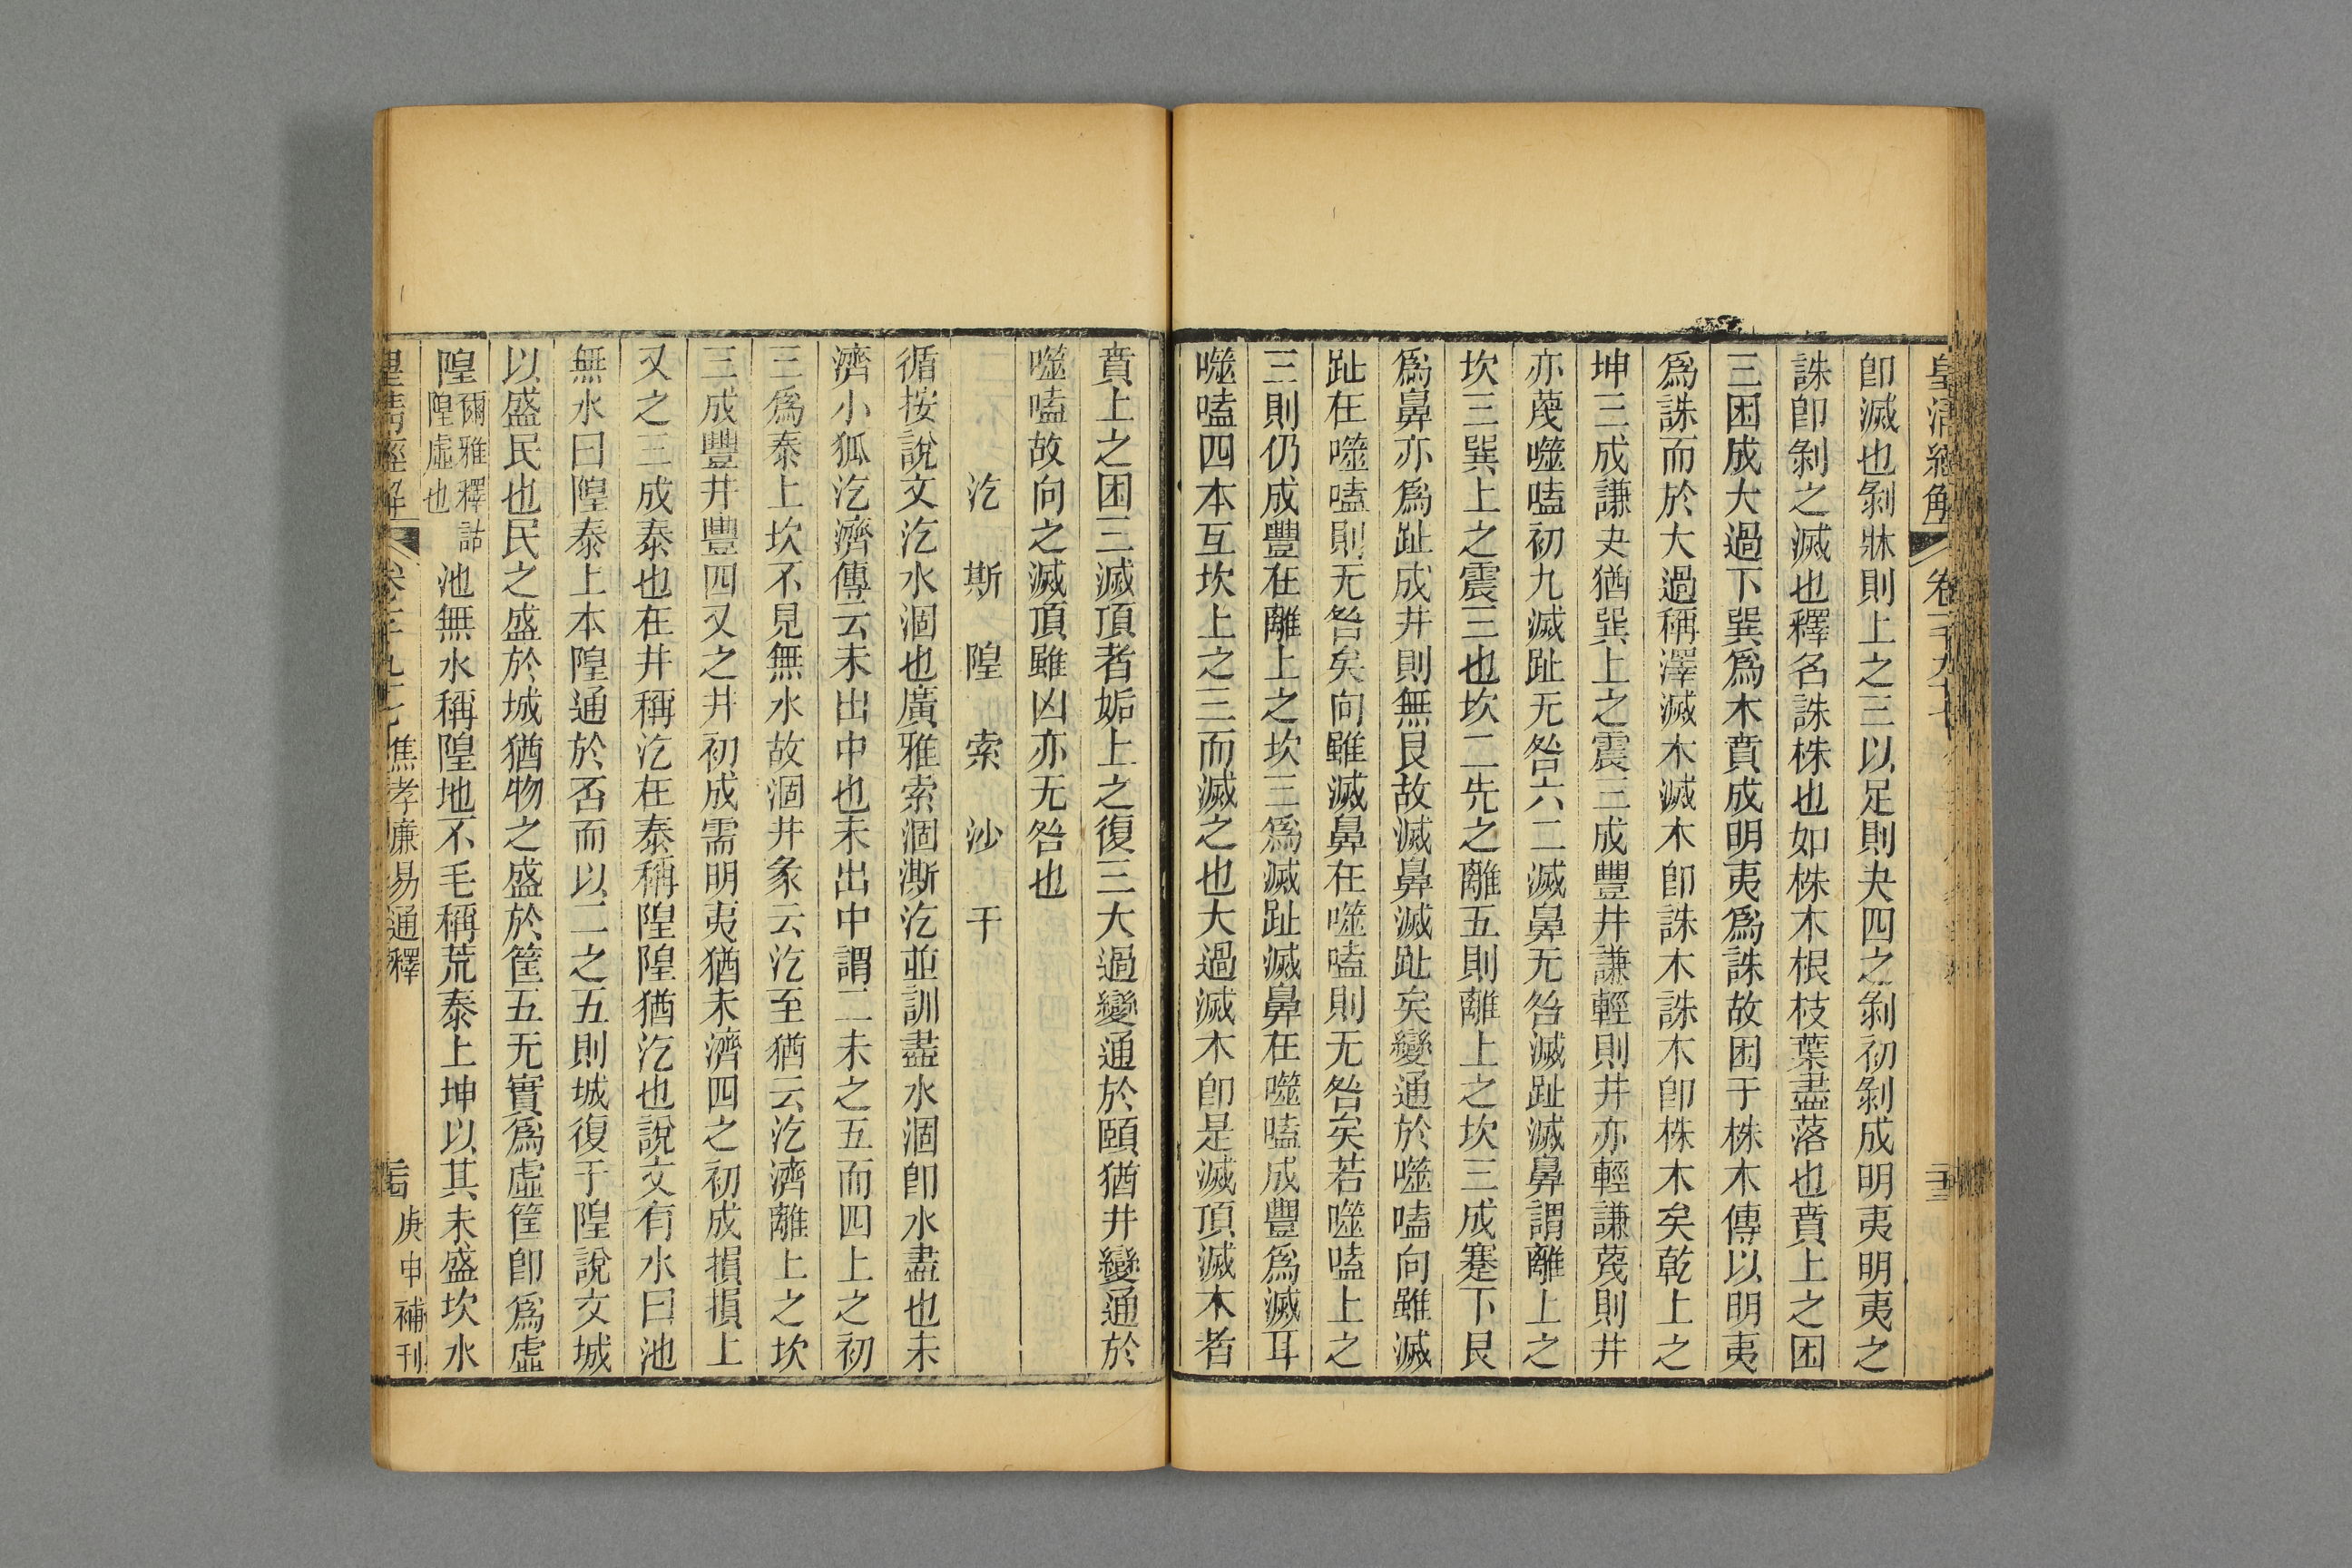 皇清經解 卷一千九十
卽滅也剝牀則上之三以足則夬四之剝初剝成明夷明夷之
誅卽剝之滅也釋名誅株也如株木根枝葉盡落也賁上之困
三困成大過下巽爲木賁成明夷爲誅故困于株木傳以明夷
爲誅而於大過稱澤滅木滅木卽誅木誅木卽株木矣乾上之
坤三成謙夬猶巽上之震三成豐井謙輕則井亦輕謙蔑則井
亦蔑噬嗑初九滅趾无咎六二滅鼻无咎滅趾滅鼻謂離上之
坎三巽上之震三也坎二先之離五則離上之坎三成蹇下艮
爲鼻亦爲趾成井則無艮故滅鼻滅趾矣變通於噬嗑向雖滅
趾在噬嗑則无咎矣向雖滅鼻在噬嗑則无咎矣若噬嗑上之
三則仍成豐在離上之坎三爲滅趾滅鼻在噬嗑成豐爲滅耳
噬嗑四本互坎上之三而滅之也大過滅木卽是滅頂滅木者
賁上之困三滅頂者姤上之復三大過變通於頤猶井變通於
噬嗑故向之滅頂雖凶亦无咎也
汔 斯 隍 索 沙 干
循按說文汔水涸也廣雅索涸澌汔並訓盡水涸卽水盡也未
濟小狐汔濟傳云未出中也未出中謂二未之五而四上之初
三爲泰上坎不見無水故涸井彖云汔至猶云汔濟離上之坎
三成豐井豐四又之井初成需明夷猶未濟四之初成損損上
又之三成泰也在井稱汔在泰稱隍隍猶汔也說文有水曰池
無水曰隍泰上本隍通於否而以二之五則城復于隍說文城
以盛民也民之盛於城猶物之盛於筐五无實爲虛筐卽爲虛
隍爾雅釋詁隍虛也池無水稱隍地不毛稱荒泰上坤以其未盛坎水
皇清經解 焦孝廉易通釋 庚申補刊